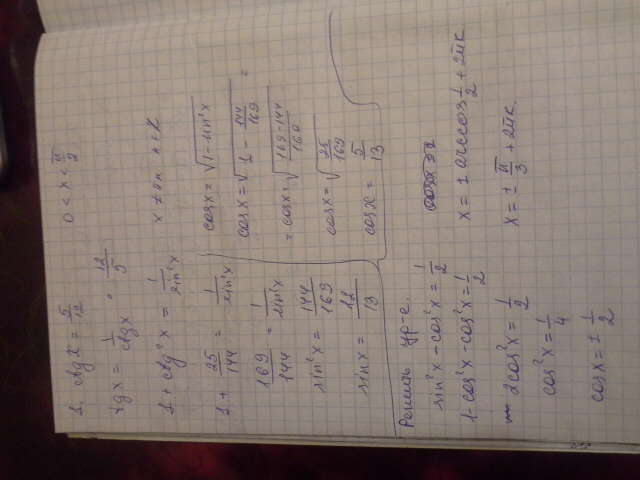 1. ctgx = 5/12   0 < x < π/2
tgx = 1/ctgx = 12/5
1 + ctg²x = 1/sin²x   x ≠ πn, n ∈ Z
1 + 25/144 = 1/sin²x
169/144 = 1/sin²x
sin²x = 144/169
sinx = 12/13
cosx = √(1 - sin²x)
cosx = √(1 - 144/169) =
= cosx = √((169-144)/169)
cosx = √(25/169)
cosx = 5/13
Решить ур-е.
sin²x - cos²x = 1/2
1 - cos²x - cos²x = 1/2
2cos²x = 1/2
cos²x = 1/4
cosx = ± 1/2
x = ± arccos 1/2 + 2πk
x = ± π/3 + 2πk.